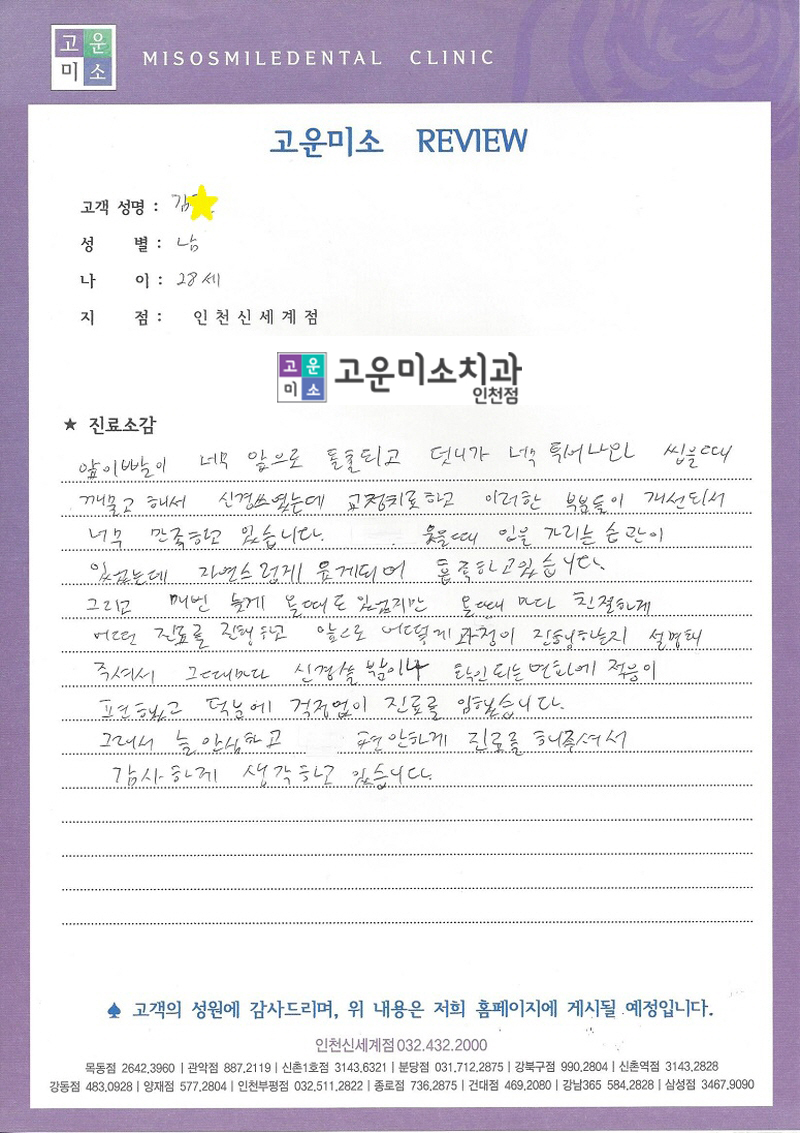 고운
미소
MISOSMILEDENTAL CLINIC
고운미소 REVIEW
고객 성명 : 김
성 별 : 남
나 이 : 28세
지 점 : 인천신세계점
고운
미소
고운미소치과
인천점
★ 진료소감
앞이빨이 너무 앞으로 돌출되고 덧니가 너무 튀어나와 씹을때
깨물고 해서 신경쓰였는데 교정치료하고 이러한 부분들이 개선되서
너무 만족하고 있습니다. 웃을때 입을 가리는 습관이
있었는데 자연스럽게 웃게되어 만족하고있습니다.
그리고 매번 늦게 올때도 있었지만 올때마다 친절하게
어떤 진료를 진행하고 앞으로 어떻게 과정이 진행하는지 설명해
주셔서 그때마다 신경쓸 밖이나 확인되는변화에 적응이
편했고 덕분에 걱정없이 진료를 임했습니다.
그래서 늘 안심하고 편안하게 진료를 해주셔서
감사하게 생각하고 있습니다.
♠ 고객의 성원에 감사드리며, 위 내용은 저희 홈페이지에 게시될 예정입니다.
인천신세계점 032.432.2000
목동점 2642,3960 | 관악점 887,2119 | 신촌1호점 3143,6321 | 분당점 031,712,2875 | 강북구점 990,2804 | 신촌역점 3143,2828
강동점 483,0928 | 양재점 577,2804 | 인천부평점 032,511,2822 | 종로점 736,2875 | 건대점 469,2080 | 강남365 584,2828 | 삼성점 3467,9090